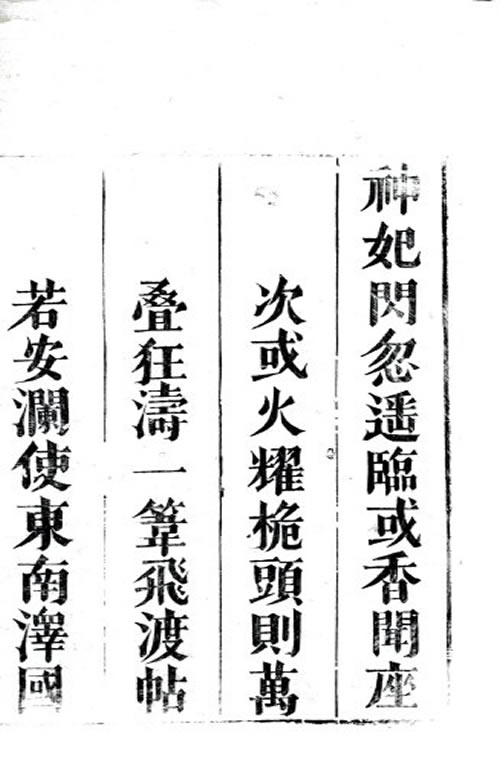 神妃閃忽遥臨或香聞座
次或火耀桅頭則萬
叠狂濤一葦飛渡帖
若安瀾使東南澤國